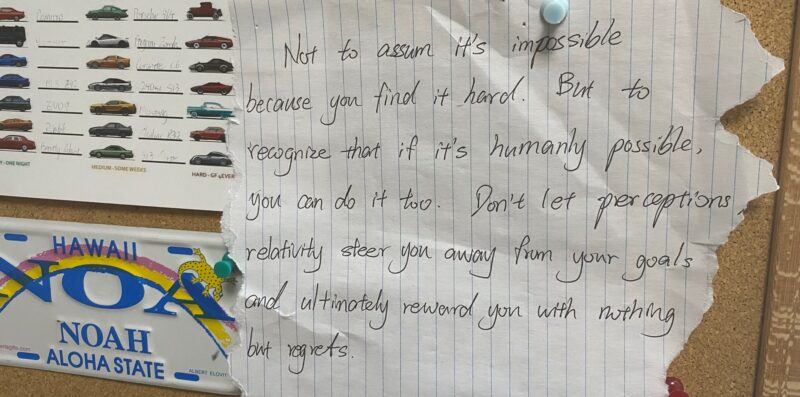 Camaro
Porsche 944
Pagani Zonda
Corvette C6
Mustang
- ONE NIGHT
MEDIUM - SOME WEEKS
HARD - GF 4EVER
HAWAII
NOA
NOAH
ALOHA STATE
ALBERT ELOVIT
Not to assum it's impossible
because you find it hard. But to
recognize that if it's humanly possible,
you can do it too. Don't let perceptions
relativity steer you away from your goals
and ultimately reward you with nothing
but regrets.